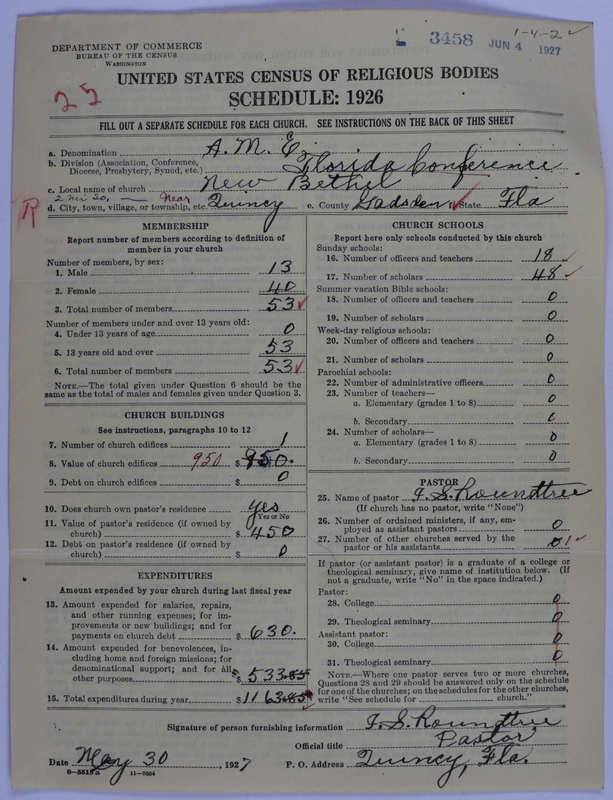 1-4-2 ✓
3458 JUN 4 1927
DEPARTMENT OF COMMERCE
BUREAU OF THE CENSUS
WASHINGTON
UNITED STATES CENSUS OF RELIGIOUS BODIES
25
SCHEDULE: 1926
FILL OUT A SEPARATE SCHEDULE FOR EACH CHURCH. SEE INSTRUCTIONS ON THE BACK OF THIS SHEET
a. Denomination A. M. E.
b. Division (Association, Conference, Diocese, Presbytery, Synod, etc.) Florida Conference
c. Local name of church New Bethel
2 mi So, — Near
R d. City, town, village, or township, etc. Quincy e. County Gadsden f. State Fla
MEMBERSHIP
Report number of members according to definition of
member in your church
Number of members, by sex:
1. Male 13
2. Female 40
3. Total number of members 53 ✓
Number of members under and over 13 years old:
4. Under 13 years of age 0
5. 13 years old and over 53
6. Total number of members 53 ✓
NOTE.—The total given under Question 6 should be the
same as the total of males and females given under Question 3.
CHURCH BUILDINGS
See instructions, paragraphs 10 to 12
7. Number of church edifices 1
8. Value of church edifices 950 $ 950.
9. Debt on church edifices $ 0
10. Does church own pastor's residence yes
Yes or No
11. Value of pastor's residence (if owned by
church) $ 450
12. Debt on pastor's residence (if owned by
church) $ 0
EXPENDITURES
Amount expended by your church during last fiscal year
13. Amount expended for salaries, repairs,
and other running expenses; for im-
provements or new buildings; and for
payments on church debt $ 630.
14. Amount expended for benevolences, in-
cluding home and foreign missions; for
denominational support; and for all
other purposes $ 533.85
15. Total expenditures during year $ 1163.85
CHURCH SCHOOLS
Report here only schools conducted by this church
Sunday schools:
16. Number of officers and teachers 18 ✓
17. Number of scholars 48 ✓
Summer vacation Bible schools:
18. Number of officers and teachers 0
19. Number of scholars 0
Week-day religious schools:
20. Number of officers and teachers 0
21. Number of scholars 0
Parochial schools:
22. Number of administrative officers 0
23. Number of teachers—
a. Elementary (grades 1 to 8) 0
b. Secondary 0
24. Number of scholars—
a. Elementary (grades 1 to 8) 0
b. Secondary 0
PASTOR
25. Name of pastor I. S. Roundtree
(If church has no pastor, write "None")
26. Number of ordained ministers, if any, em-
ployed as assistant pastors 0
27. Number of other churches served by the
pastor or his assistants 0 1 ✓
If pastor (or assistant pastor) is a graduate of a college or
theological seminary, give name of institution below. (If
not a graduate, write "No" in the space indicated.)
Pastor:
28. College 0
29. Theological seminary 0
Assistant pastor:
30. College 0
31. Theological seminary 0
NOTE.—Where one pastor serves two or more churches,
Questions 28 and 29 should be answered only on the schedule
for one of the churches; on the schedules for the other churches,
write "See schedule for church."
Signature of person furnishing information I. S. Roundtree
Official title Pastor
Date May 30, 1927 P. O. Address Quincy, Fla.
8-5518a 11-9064